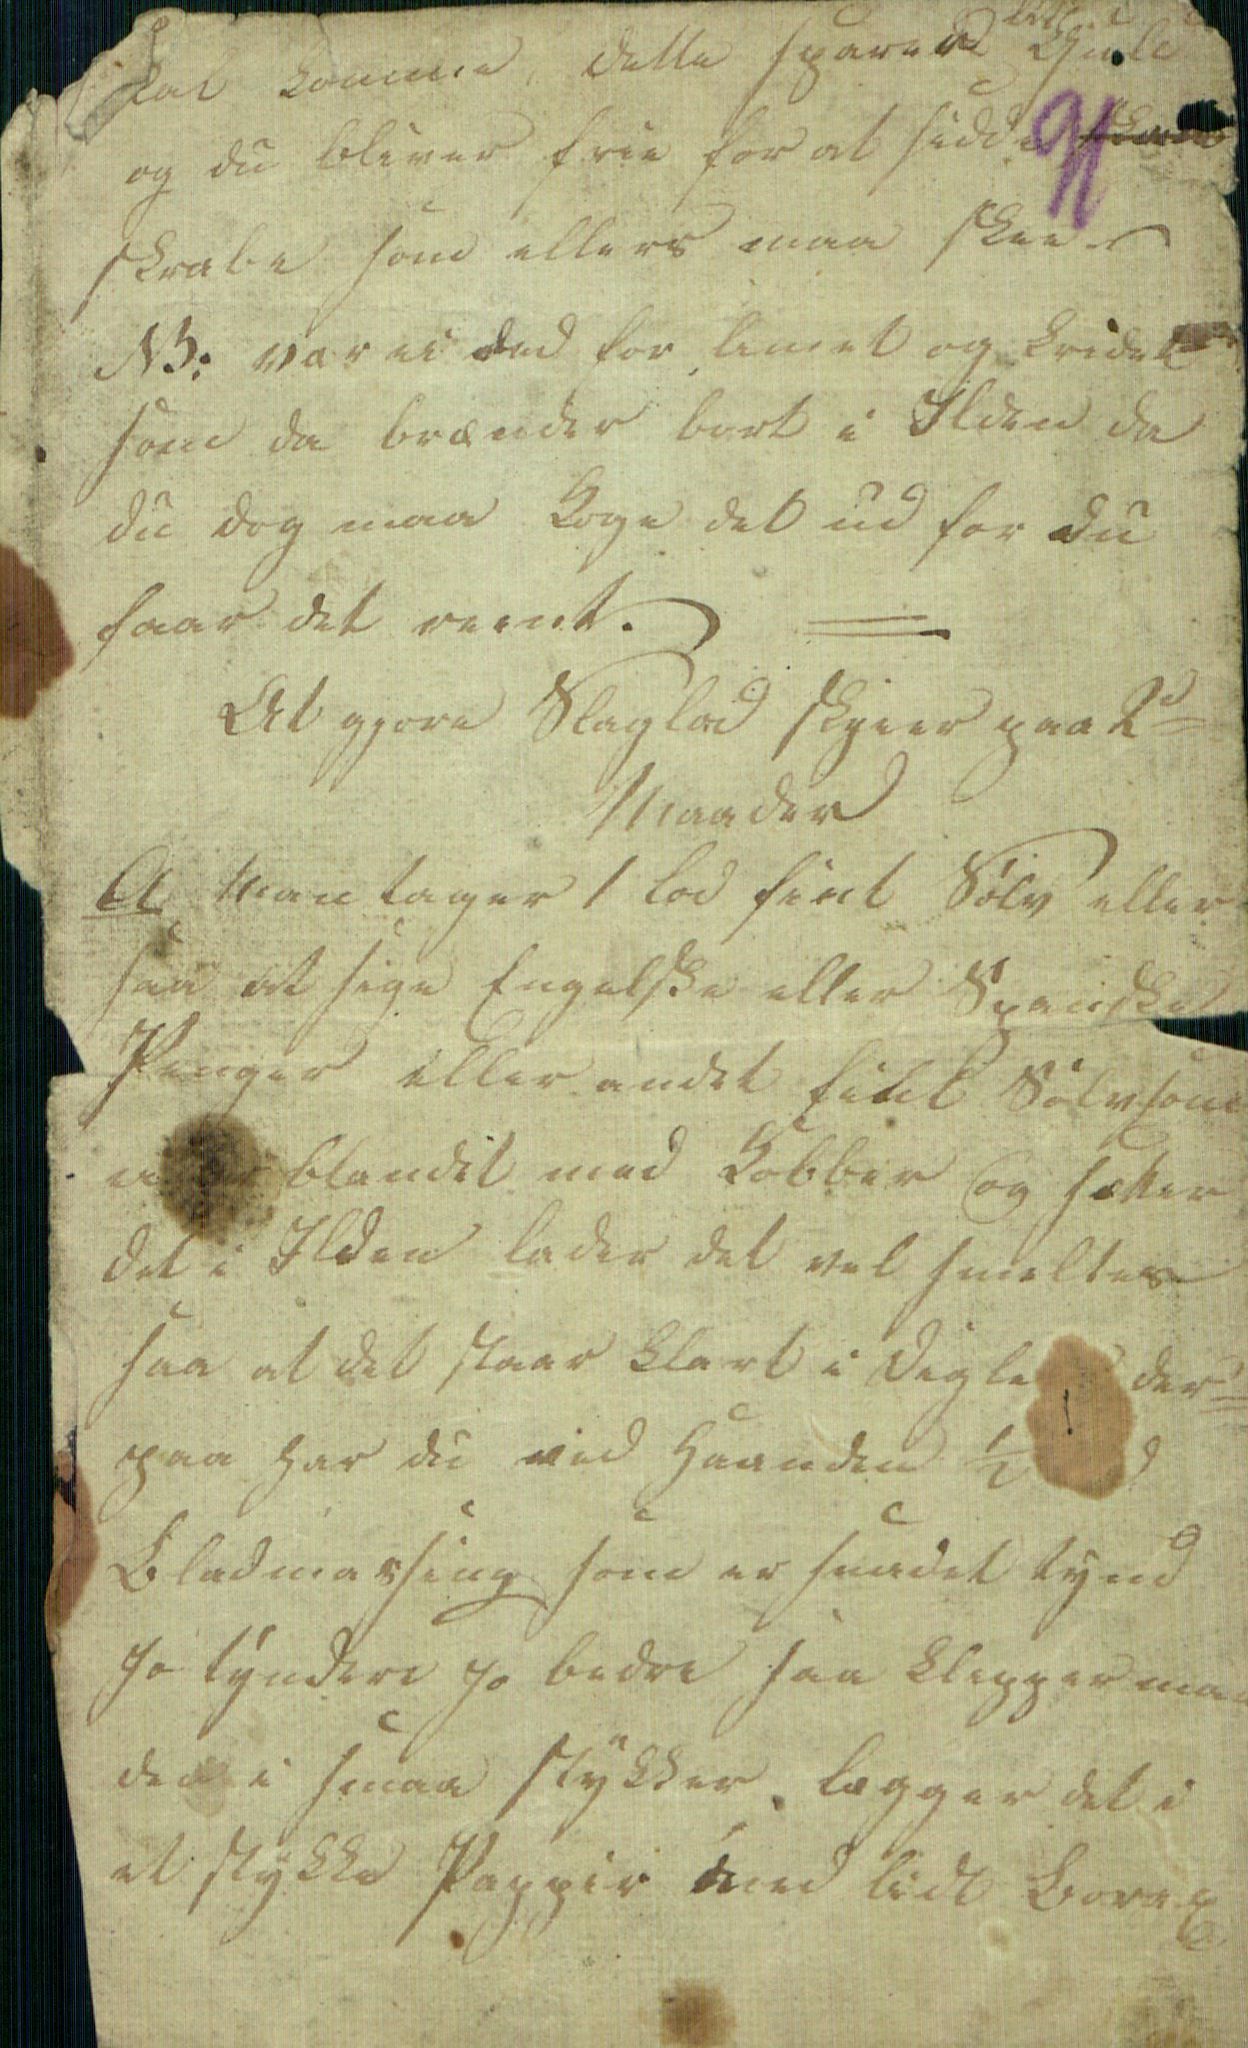 skal komme, dette sparer Guld
og du bliver frie for at sidde
skrabe som ellers maa skee
NB: var ei ræd for Limet og Kridet
som da brænder bort i Ilden da
du dog maa Koge det ud for du
faar det reent.
At gjøre Slaglod skjeer paa 2de
Maader
A Man tager 1 Lod fint Sølv eller
saa at sige Engelske eller Spanske
Penger eller andet fint Sølv som
ei er blandet med Kobber og sætter
det i Ilden lader det vel smeltes
saa at det staar Klart i Digle der=
paa har du ved Haanden 1/2
Bladmessing som er smedet tynd
jo tyndere jo bedre saa Klepper man
den i smaa stykker, lægger det i
et stykke Pappir med lidt Borax